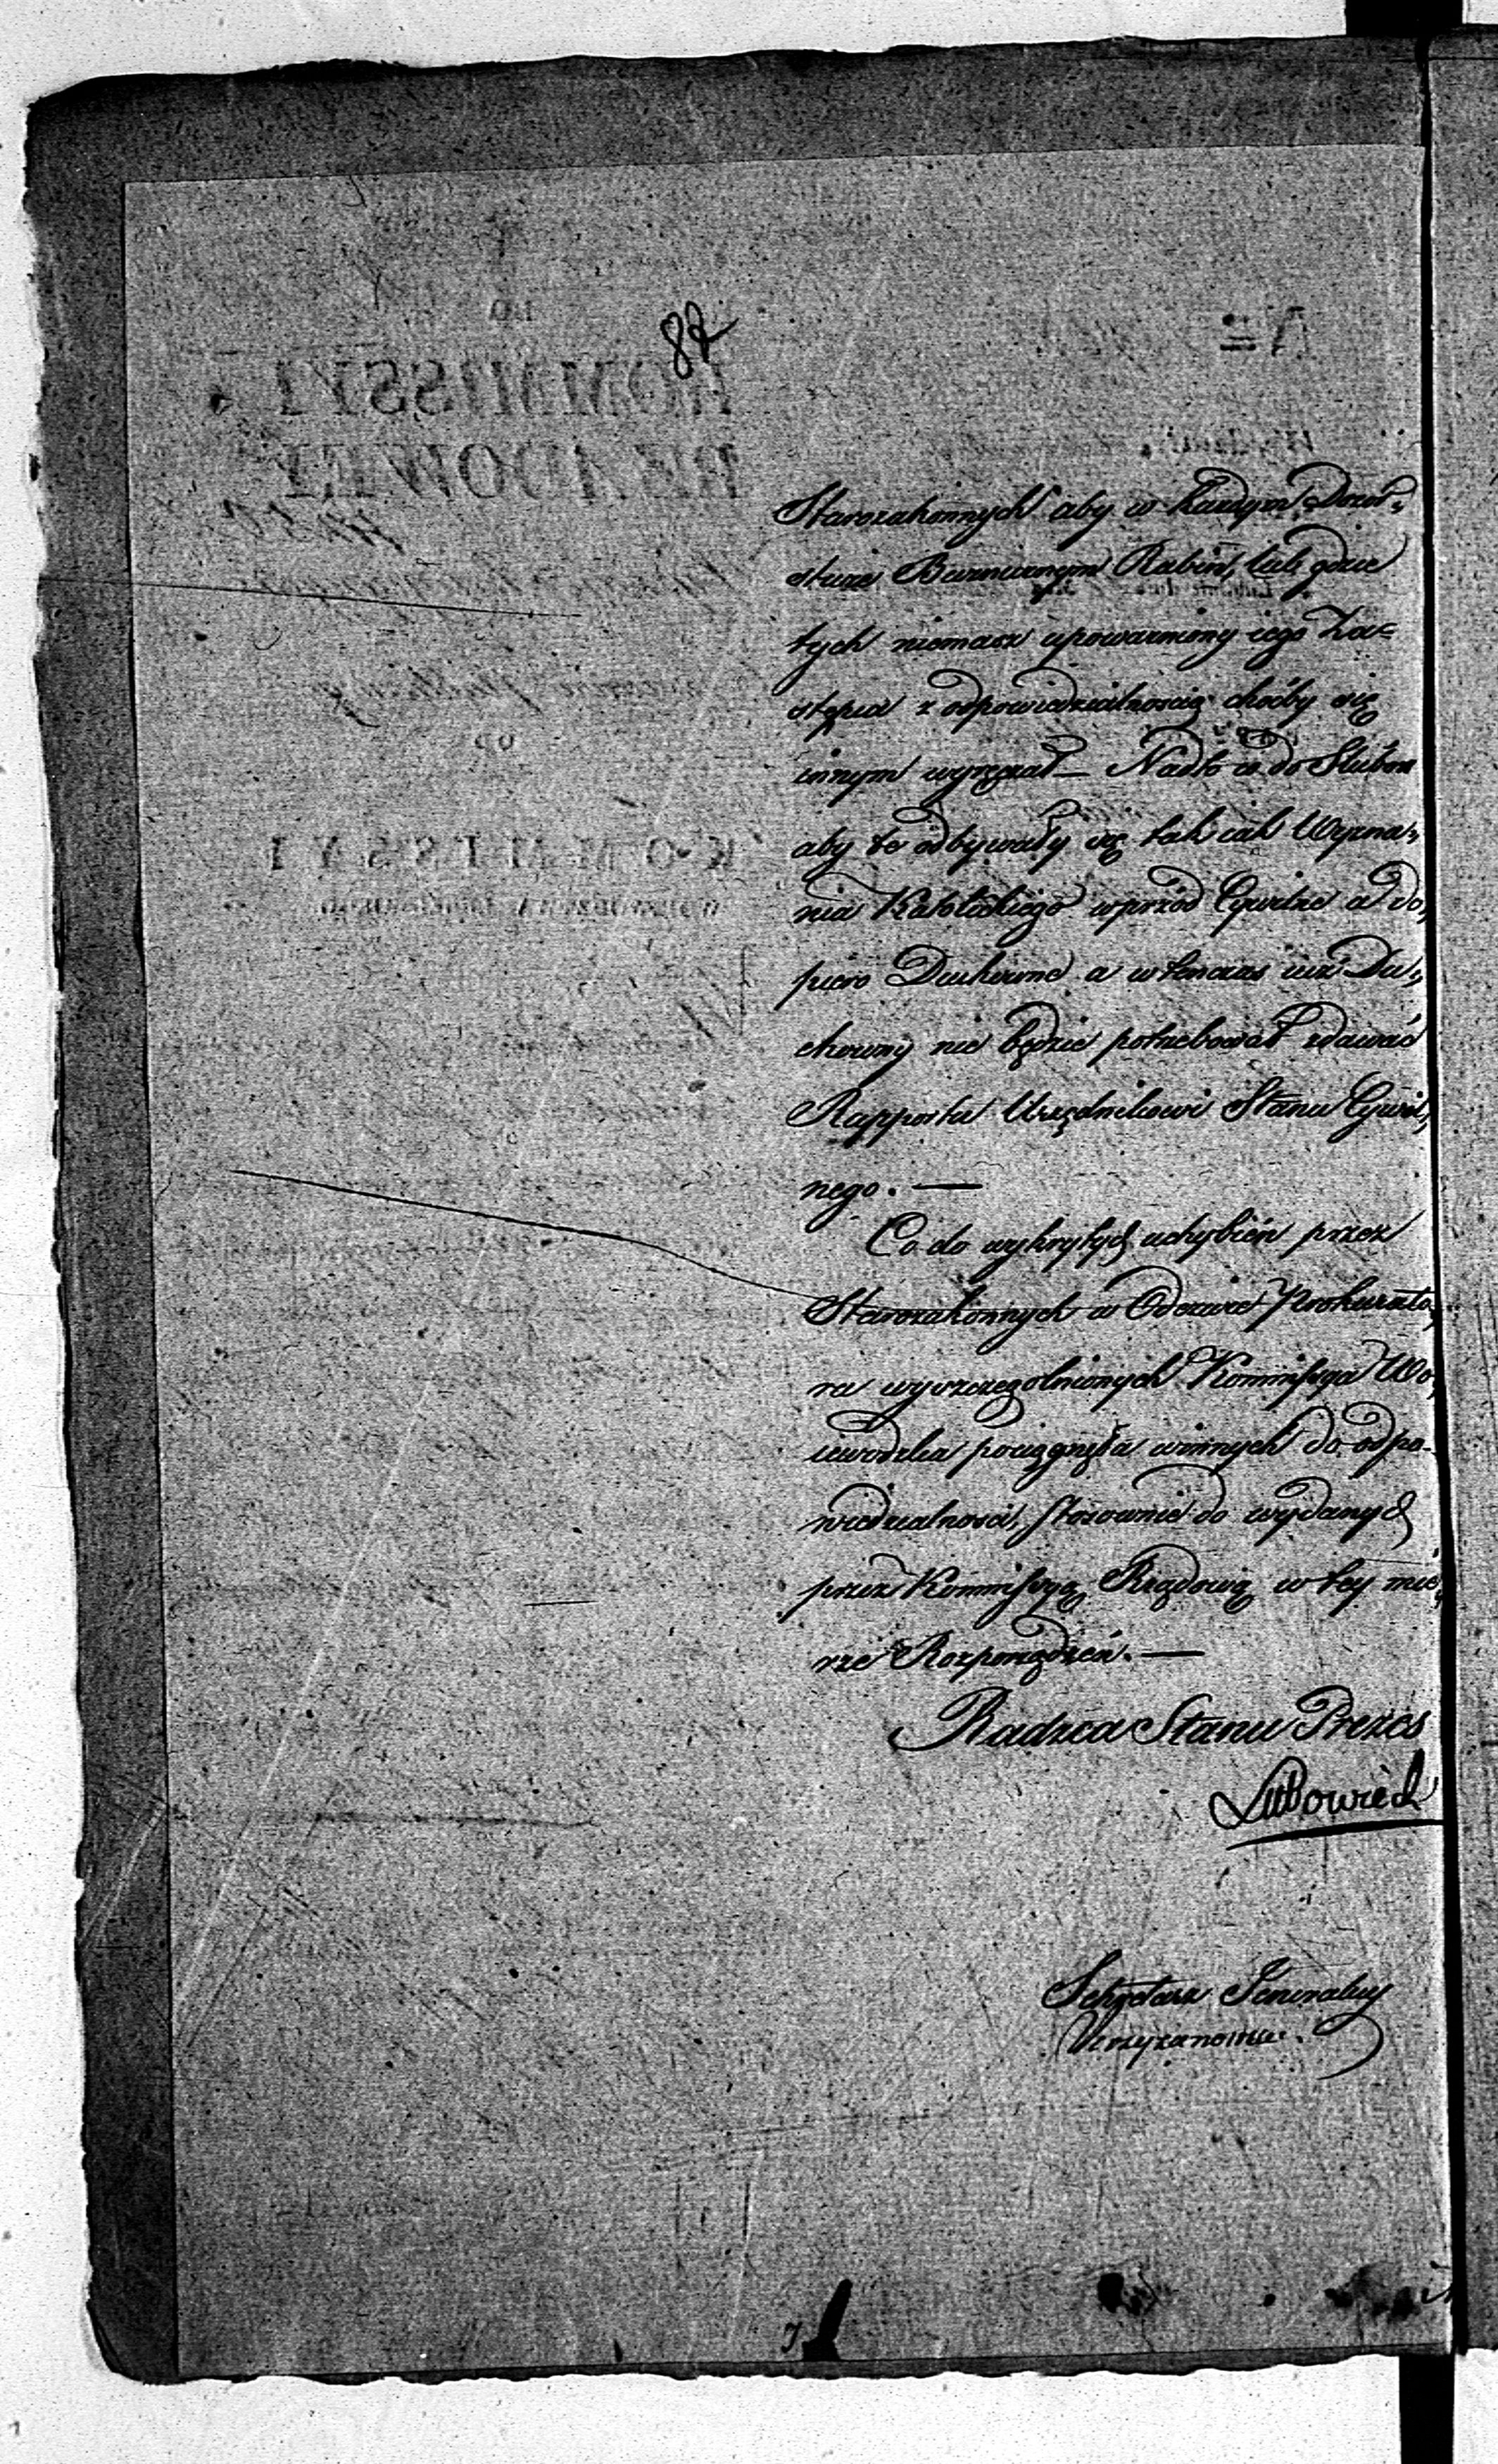 87
Starozakonnych aby w każdym Dozor„
stwie Bużnicznym Rabin, lub gdzie
tych niemasz upoważniony iego Za=
stępca z odpowiedzialnością choćby się
innym wyręczał — Nadto co do Slubów
aby te odbywały się tak iak Wyzna„
nia Katolickiego wprzód Cywilne a do„
piero Duchowne a wtenczas iuż Du„
chowny nie będzie potrzebował zdawać
Rapportu Urzędnikowi Stanu Cywil„
nego. —
Co do wykrytych uchybień przez
Starozakonnych w Odezwie Prokurato„
ra wyszczególnionych Kommissya Wo„
iewódzka pociągnęła winnych do odpo-
wiedzialności, stosownie do wydanych
przez Kommissyą Rządową w tey mie„
rze Rozporządzeń. —
Radzca Stanu Prezes
Lubowiedz
Sekretarz Jeneralny
Krzyżanowski.
KOMMISSYI
RZĄDOWEY
OD
KOMMISSYI